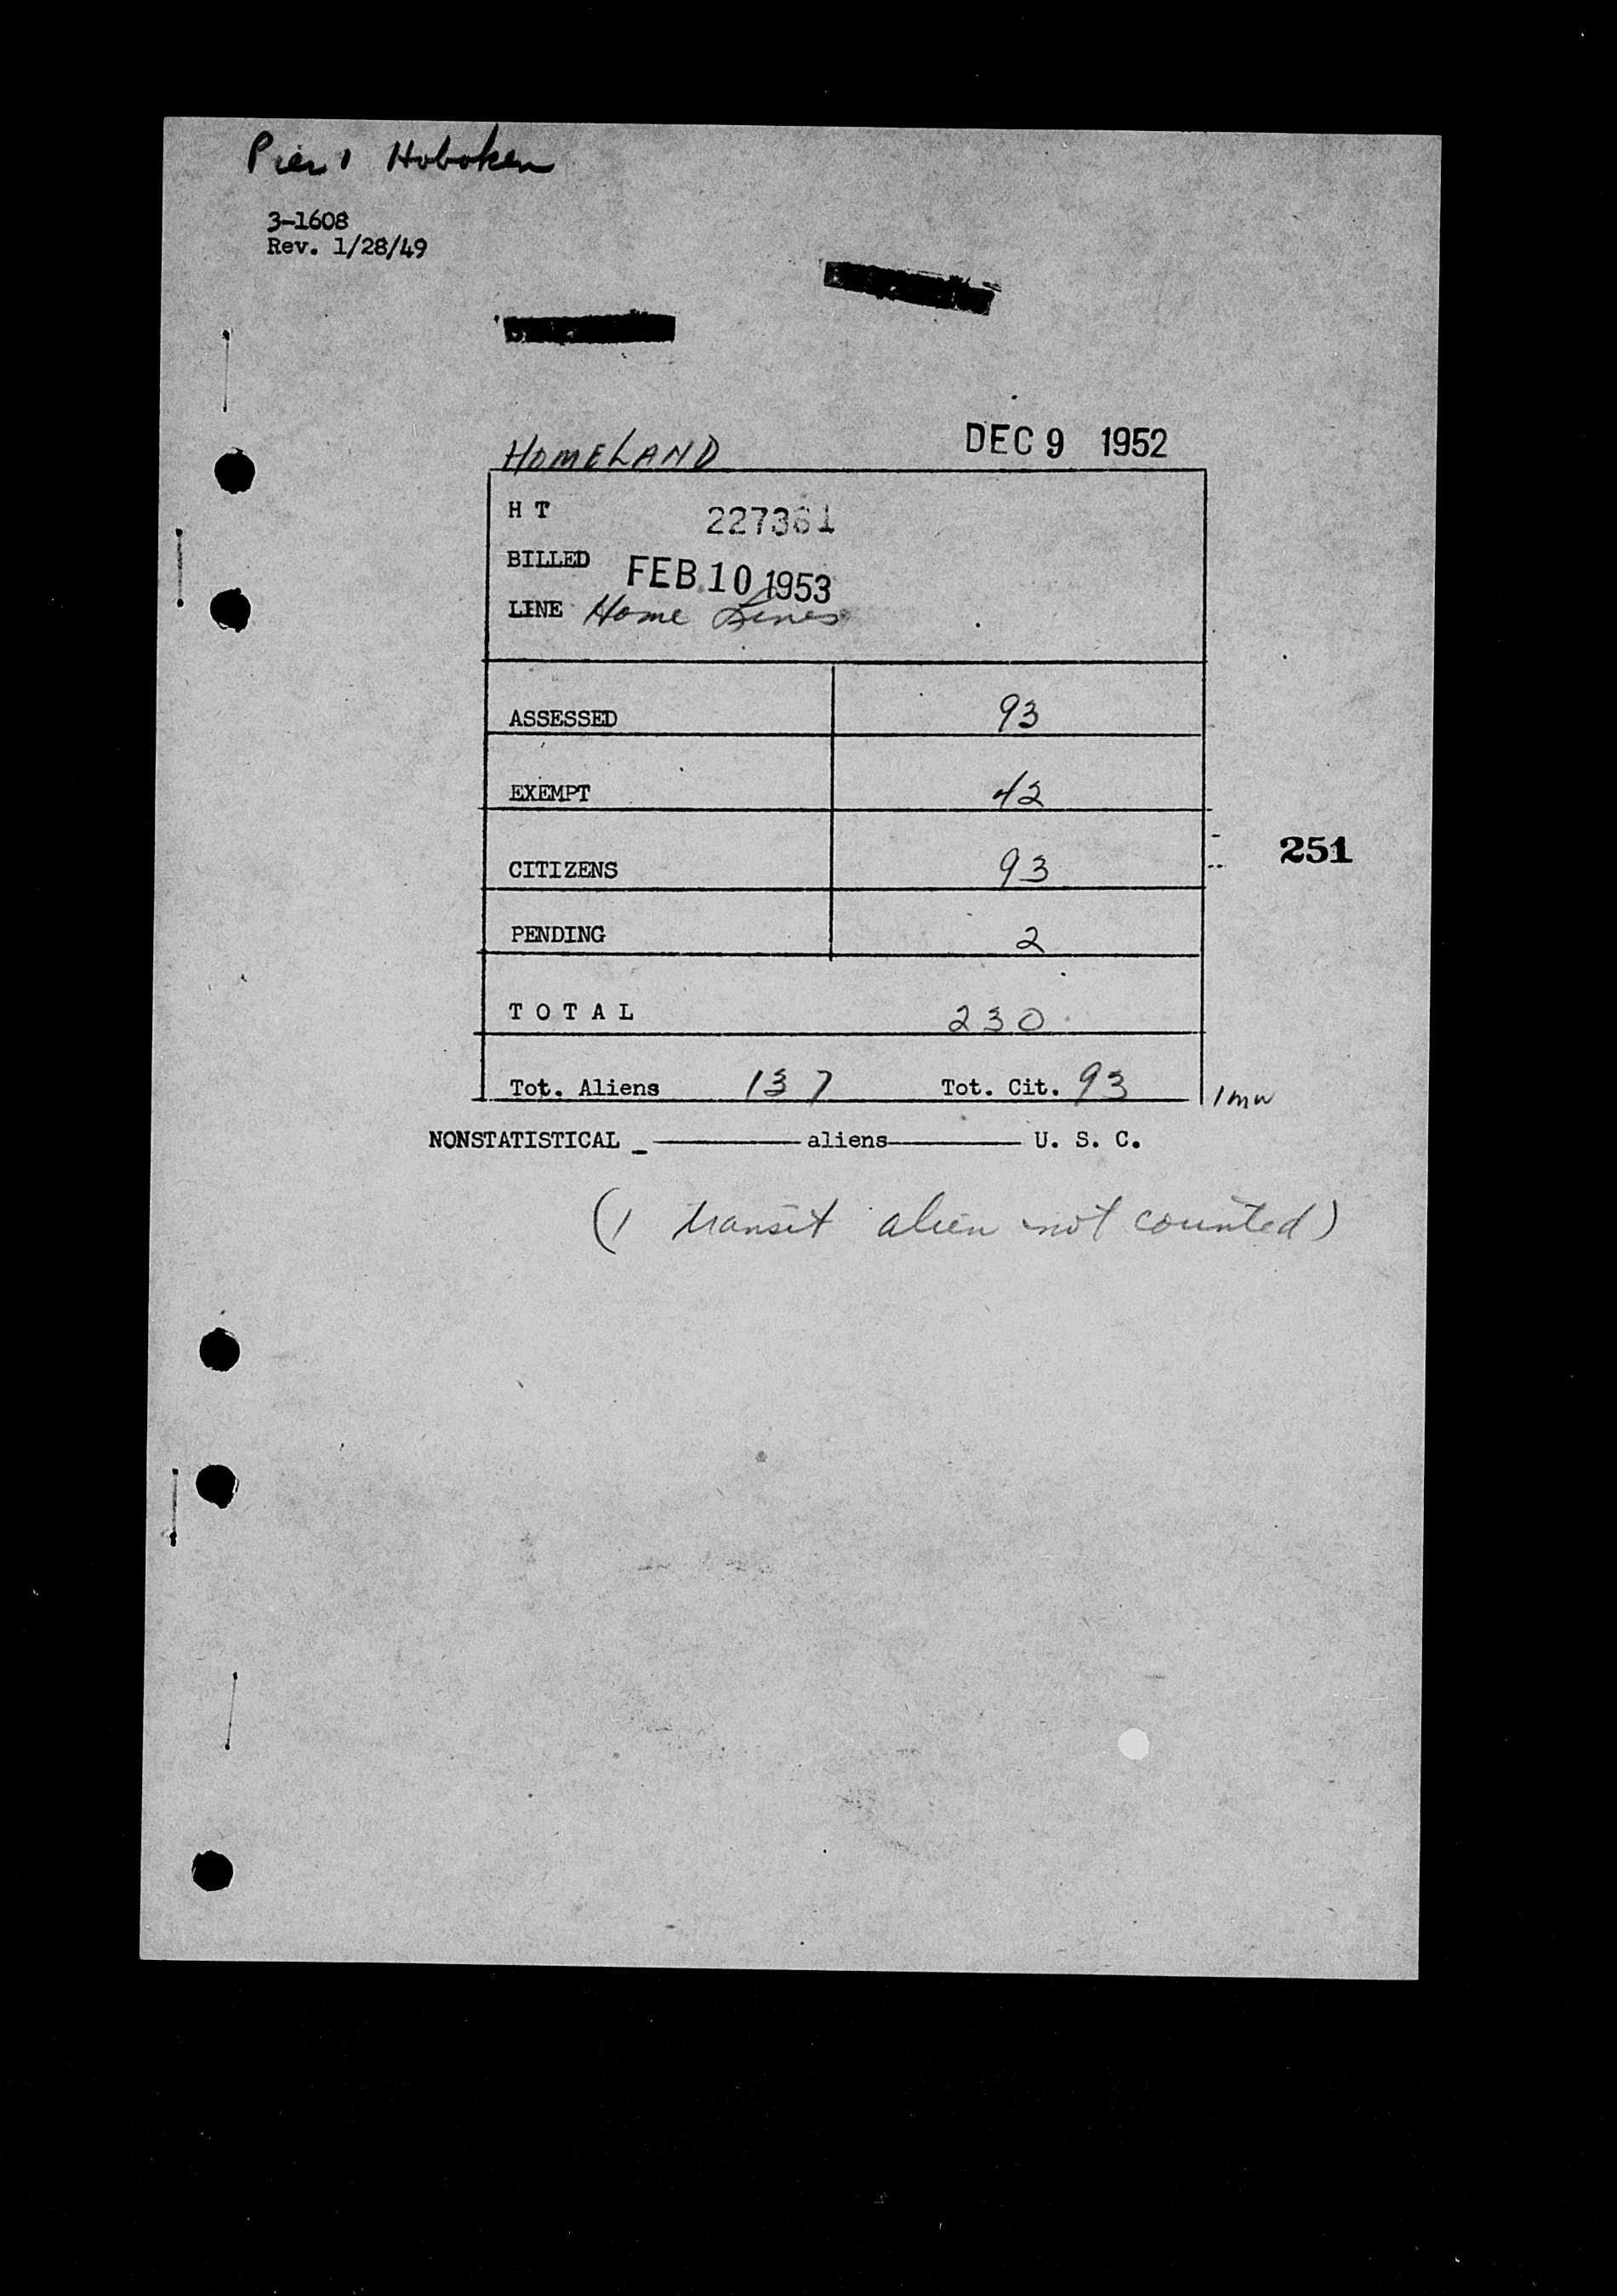 Pier 1 Hoboken
3-1608
Rev. 1/28/49
HOMELAND DEC 9 1952
H T 227361
BILLED FEB 10 1953
LINE Home Lines
ASSESSED 93
EXEMPT 42
251
CITIZENS 93
PENDING 2
T O T A L 230
Tot. Aliens 137 Tot. Cit. 93
NONSTATISTICAL aliens U. S. C.
(1 transit alien not counted)